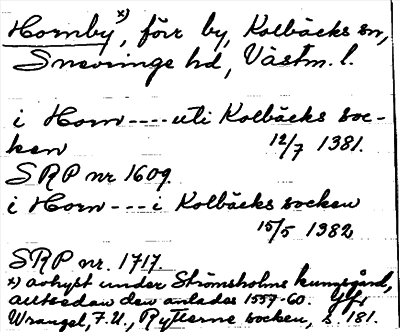 Hornby x), förr by, Kolbäcks sn,
Snevringe hd, Västm. l.
i Horn---- uti Kolbäcks soc-
ken 12/7 1381.
SRP nr 1609.
i Horn---- i Kolbäcks socken
15/5 1382
SRP nr. 1717.
x) avhyst under Strömsholms kungsgård,
allt sedan den anlades 1557-60. Jfr
Wrangel, F.U., Rytterne socken, s. 181.